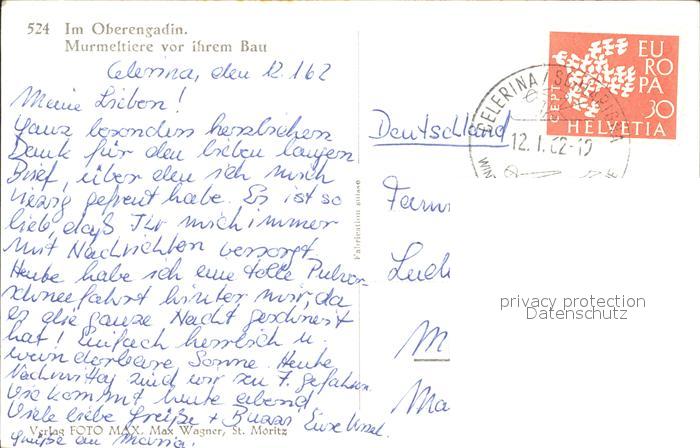 524 Im Oberengadin.
Murmeltiere vor ihrem Bau
Celerina, den 12.1.62
Meine Lieben!
Ganz besonders herzlichen
Dank für den lieben langen
Brief, über den ich mich
riesig gefreut habe. Es ist so
lieb, daß Ihr mich immer
mit Nachrichten versorgt.
Heute habe ich eine tolle Pulver-
schneefahrt hinter mir, da
es die ganze Nacht geschneit
hat! Einfach herrlich u.
wunderbare Sonne. Heute
Nachmittag sind wir zu 7. gefahren.
kommt heute abend
Viele liebe Grüße + Bussi Eure
Grüße an Maria!
Verlag FOTO MAX. Max Wagner, St. Moritz
Fabrication suisse
CELERINA/SCHLARIGNA
12.I.62-19
WIN
CEPT
EUROPA
30
HELVETIA
Deutschland
Fam
M
Ma
privacy protection
Datenschutz